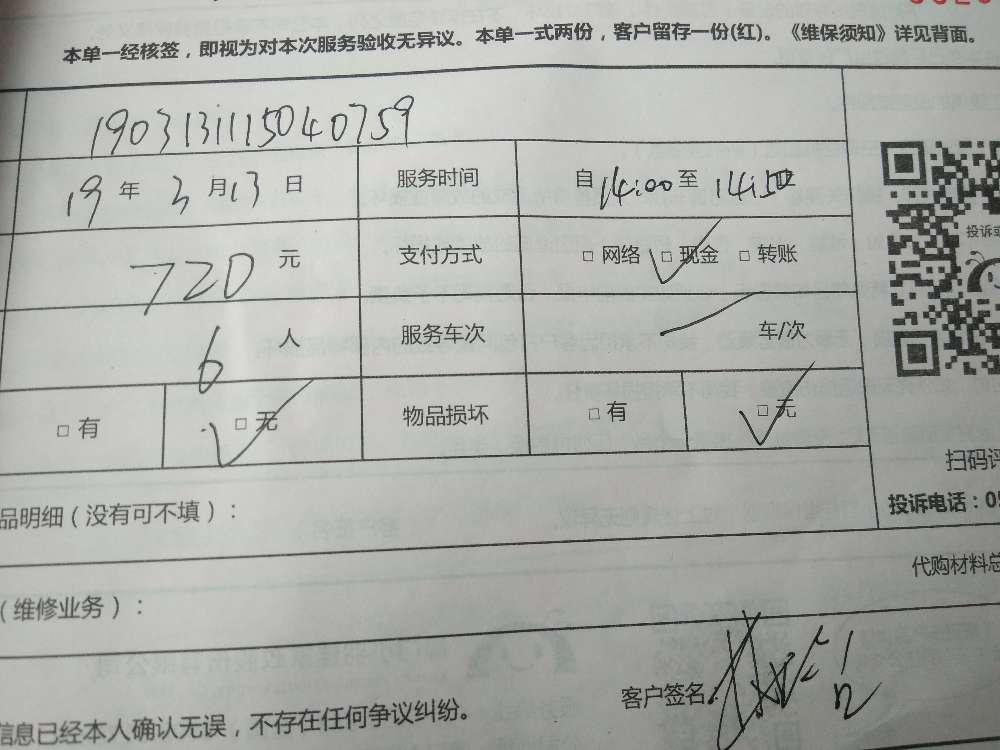 本单一经核签，即视为对本次服务验收无异议。本单一式两份，客户留存一份(红)。《维保须知》详见背面。
1903131115040759
19年3月13日 服务时间 自14:00至14:50
720元 支付方式 □网络 □现金 □转账
投诉或
6人 服务车次 车/次
□有 □无 物品损坏 □有 □无
扫码评
品明细（没有可不填）： 投诉电话：05
代购材料总
（维修业务）：
客户签名：
信息已经本人确认无误，不存在任何争议纠纷。